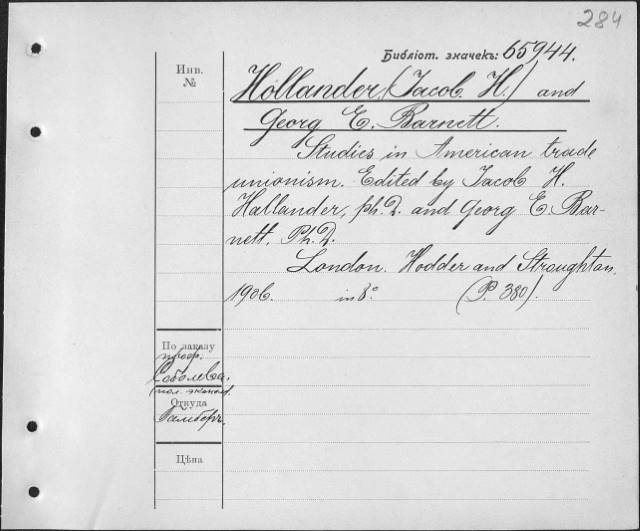 284
Библіот. значекъ: 65944.
Инв.
№
Hollander, (Jacob H.) and
Georg E. Barnett.
Studies in American trade
unionism. Edited by Jacob H.
Hallander, ph. D. and Georg E. Bar-
nett. Ph. D.
London. Hodder and Stroughton.
1906. in 8° (P. 380).
По заказу
проф.
Соболева.
(пол. эконом.
Откуда
Гамберъ.
Цѣна